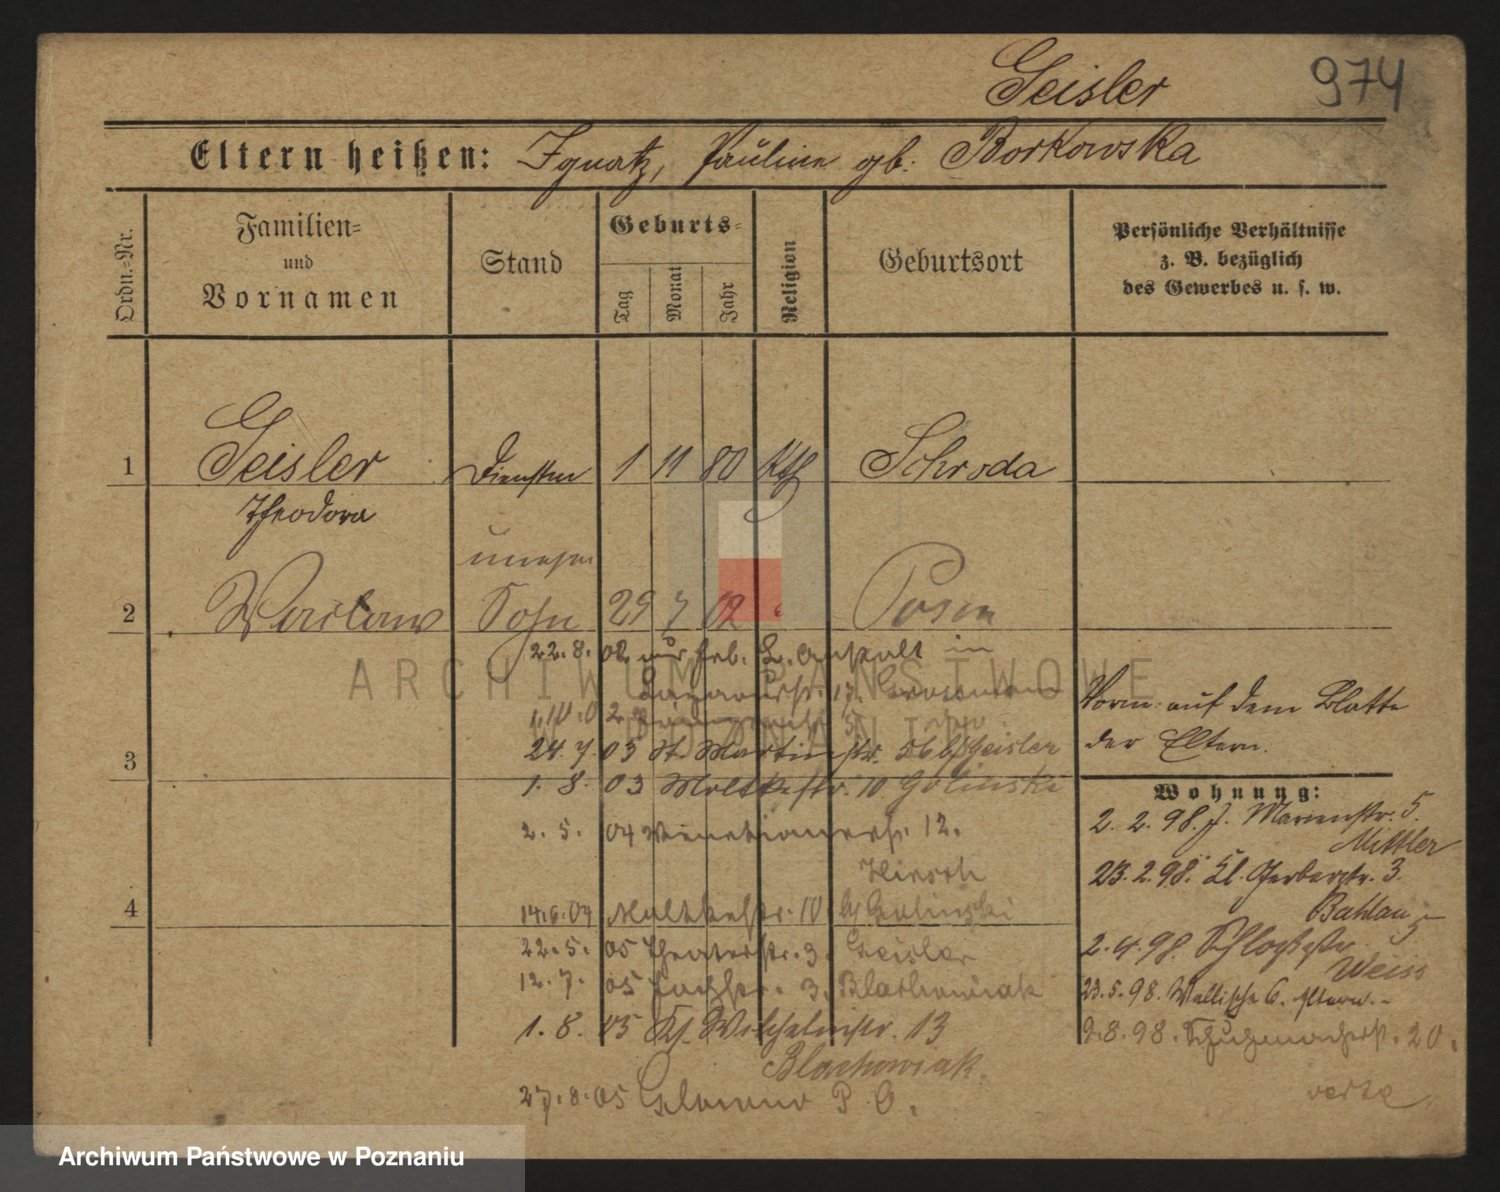 Geisler 974
Eltern heißen: Ignatz, Pauline gb. Borkowska
Ordn.-Nr.
Familien-
und
Vornamen
Stand
Geburts-
Tag
Monat
Jahr
Religion
Geburtsort
Persönliche Verhältnisse
z. B. bezüglich
des Gewerbes u. s. w.
1 Geisler 1 11 80 Kth Schroda
Theodora
unehe
2 Waclaw Sohn 29 7 02 Posen
22.8.02 Anstalt in
1.10.02
24.7.03 St. Martinstr. 56 b/Geisler
3
1.8.03 Moltkestr. 10 Golinski
2.5.04 Venetianerstr. 12.
Hirsch
4
14.6.04 Moltkestr. 10 b/Golinski
22.5.05 Theaterstr. 3. Geisler
12.7.05 3. Blachowiak
1.8.05 Wilhelmstr. 13
Blachowiak.
27.8.05 Glowno P. O.
Vorm. auf dem Blatte
der Eltern.
Wohnung:
2.2.98. J. Marienstr. 5.
Mittler
23.2.98. Kl. Gerberstr. 3.
Bahlau
2.4.98. Schloßstr
Weiss
23.5.98. Wallische 6. Eltern.-
9.8.98. Schuhmacherstr. 20.
verte.
ARCHIWUM PAŃSTWOWE
W POZNANIU
Archiwum Państwowe w Poznaniu